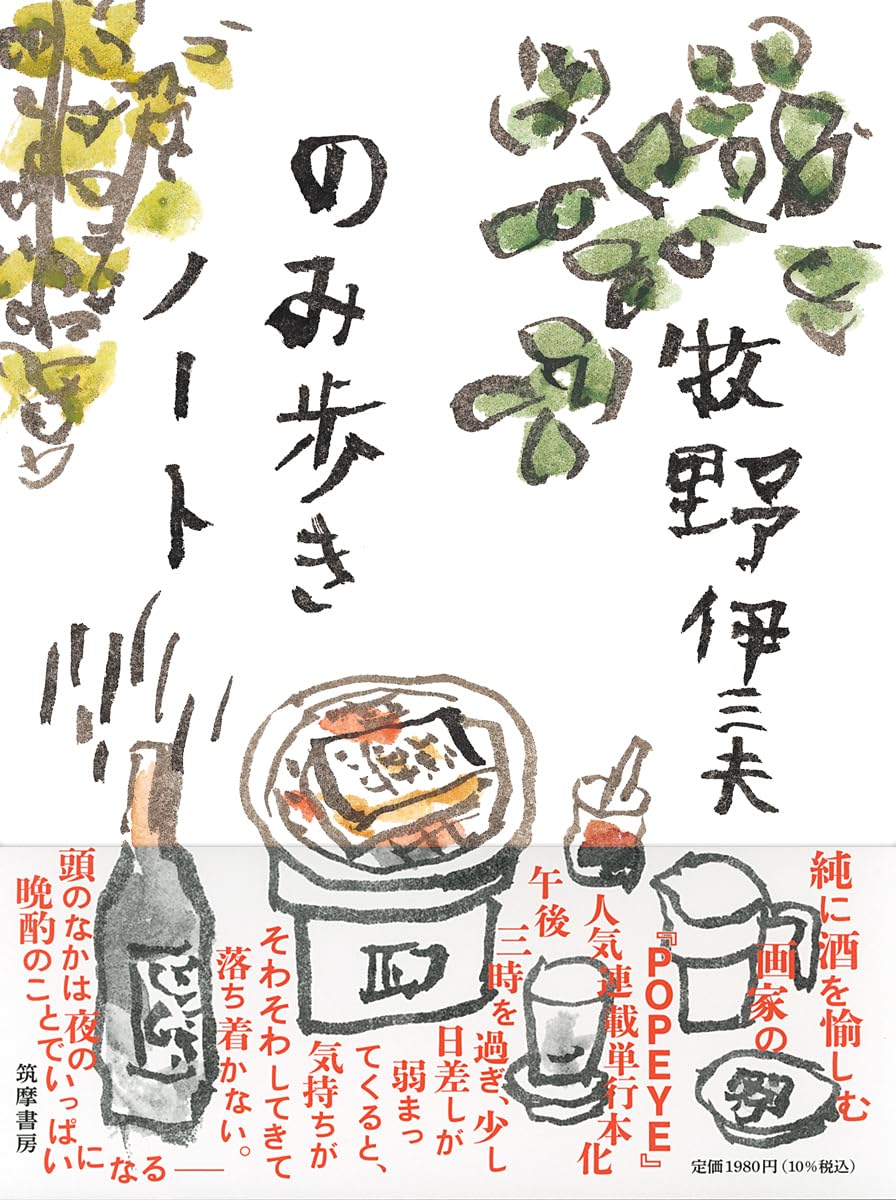 牧野伊三夫
のみ歩き
ノート
純に酒を愉しむ
画家の
『POPEYE』
人気連載単行本化
午後
三時を
過ぎ、少し
日差しが
弱まっ
てくると、
気持ちが
そわそわしてきて
落ち着かない。
頭のなかは夜の
晩酌のことでいっぱい
になる──
筑摩書房
定価1980円(10%税込)